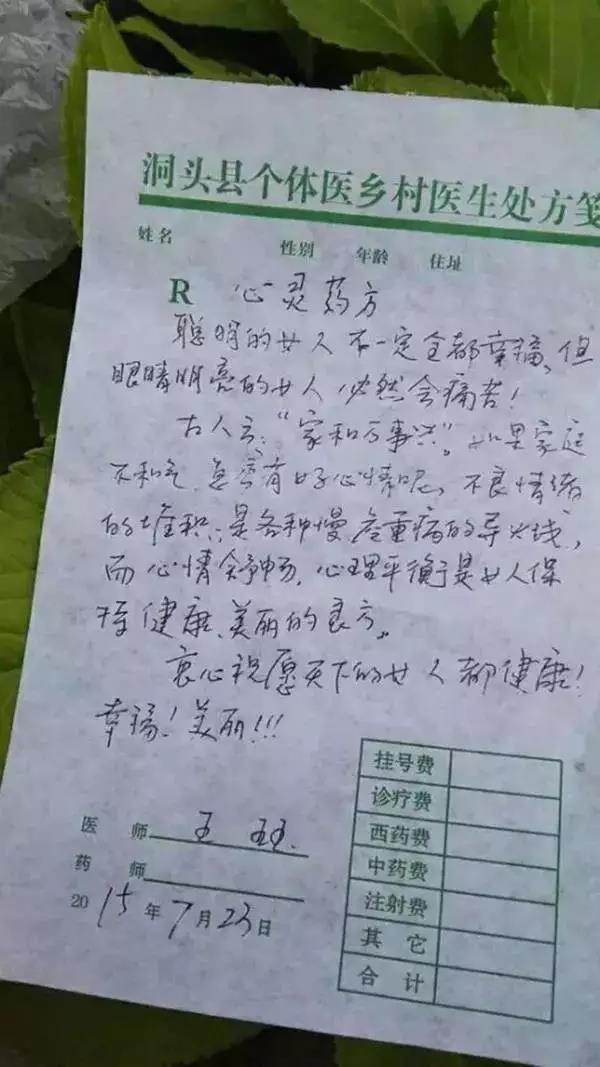 洞头县个体医乡村医生处方笺
姓名 性别 年龄 住址
R 心灵药方
聪明的女人不一定全都幸福、但
眼睛明亮的女人必然会痛苦!
古人云:“家和万事兴”。如果家庭
不和气,怎会有好心情呢、不良情绪
的堆积:是各种慢、危重病的导火线,
而心情舒畅、心理平衡是女人保
持健康、美丽的良方。
衷心祝愿天下的女人都健康!
幸福!美丽!!!
挂号费
诊疗费
西药费
中药费
注射费
其它
合计
医师 王
药师
2015年7月23日